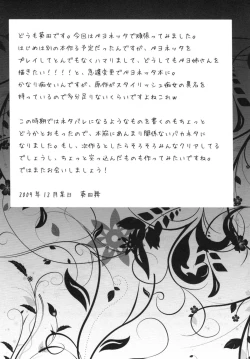 どうも葵田です。今回はベヨネッタで頑張ってみました。
はじめは別の本作る予定だったんですが、ベヨネッタを
プレイしてとんでもなくハマりまして、どうしてもベヨ姉さんを
描きたい!!!!と、急遽変更でベヨネッタ本に。
かなり痴女いんですが、原作がスタイリッシュ痴女の異名を
持っているので多分足りないくらいですよねこれw
この時期ではネタバレになるようなものを書くのもちょっと
どうかとおもったので、本編にあんまり関係ないバカネタに
なりました。もし、次作るとしたらそろそろみんなクリアしてる
でしょうし、ちょっと突っ込んだものも作ってみたいですね。
ではまたお会いしましょう!
2009年12月某日